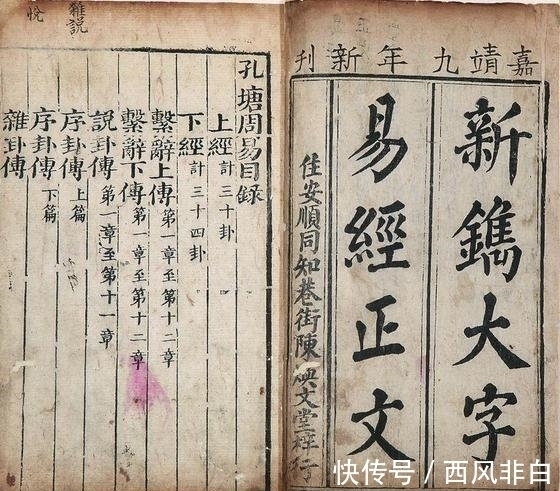 嘉靖九年新刊
新鐫大字
易經正文
住安順同知巷街陳奐文堂梓行
孔塘周易目錄
上經計三十卦
下經計三十四卦
繫辭上傳第一章至第十二章
繫辭下傳第一章至第十二章
說卦傳第一章至第十一章
序卦傳上篇
序卦傳下篇
雜卦傳
雜説
悅
快传号/西风非白